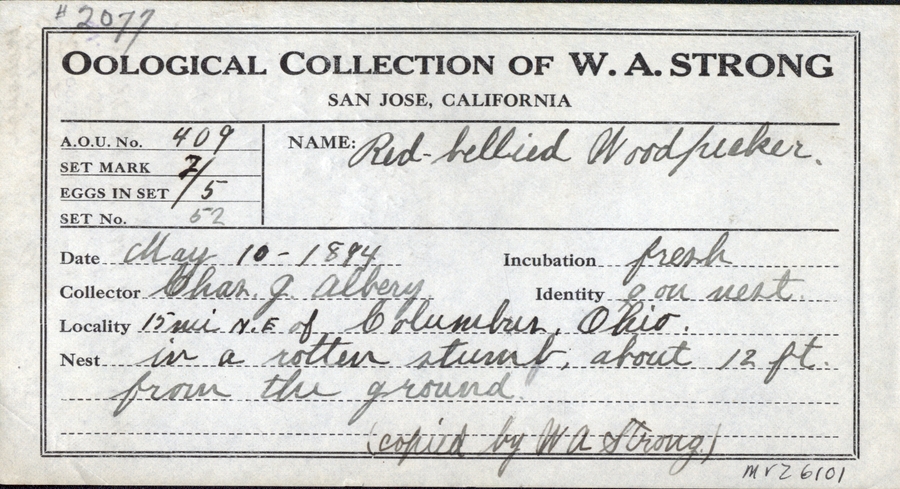 #2077
OOLOGICAL COLLECTION OF W. A. STRONG
SAN JOSE, CALIFORNIA
A.O.U. No. 409
SET MARK 2/
EGGS IN SET 5
SET No. 52
NAME: Red-bellied Woodpecker.
Date May 10-1894
Incubation fresh
Collector Chas. J. Albery
Identity on nest.
Locality 15 mi N.E of Columbus, Ohio.
Nest in a rotten stump, about 12 ft.
from the ground.
(copied by W A Strong.)
MVZ 6101